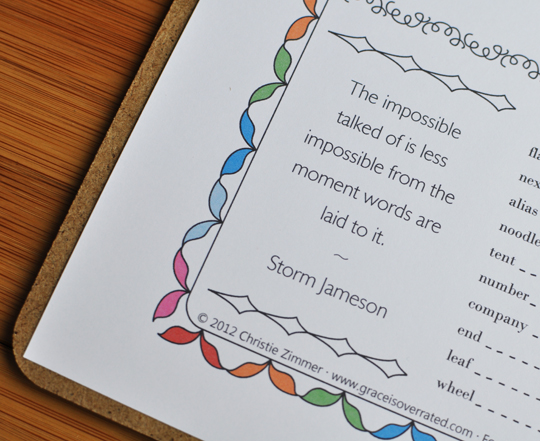 The impossible
talked of is less
impossible from the
moment words are
laid to it.
~
Storm Jameson
© 2012 Christie Zimmer · www.graceisoverrated.com ·
alias
noodle
tent
number
company
end
leaf
wheel